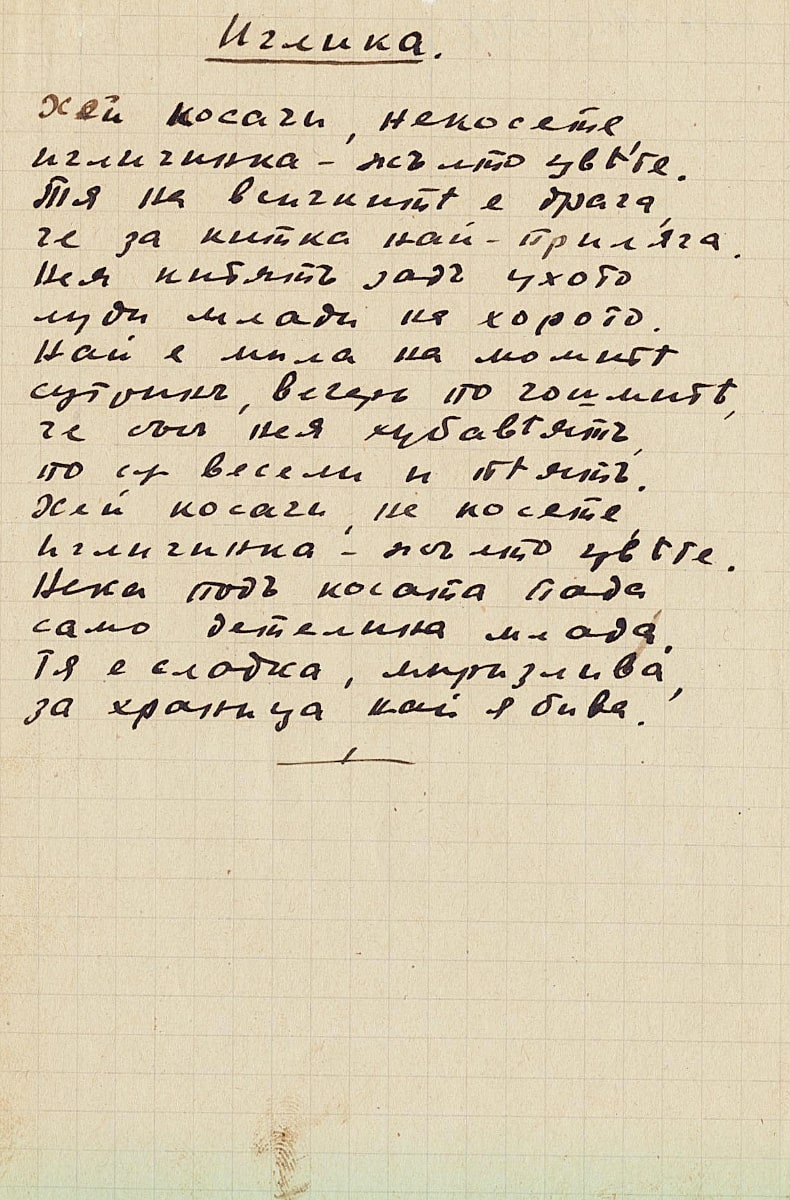 Иглика.
Хей косачи, некосете,
игличинка - жълто цвѣте.
Тя на всичкитѣ е драга,
че за китка най-приляга.
Нея китятъ задъ ухото
луди млади на хорото.
Най е мила на момитѣ
сутринь, вечерь по чешмитѣ,
че съсъ нея хубавѣятъ,
по су весели и пѣятъ.
Хей косачи, не косете,
игличинка - жълто цвѣте.
Нека подъ косата пада
само детелина млада,
тя е сладка, миризлива,
за храница най я бива.